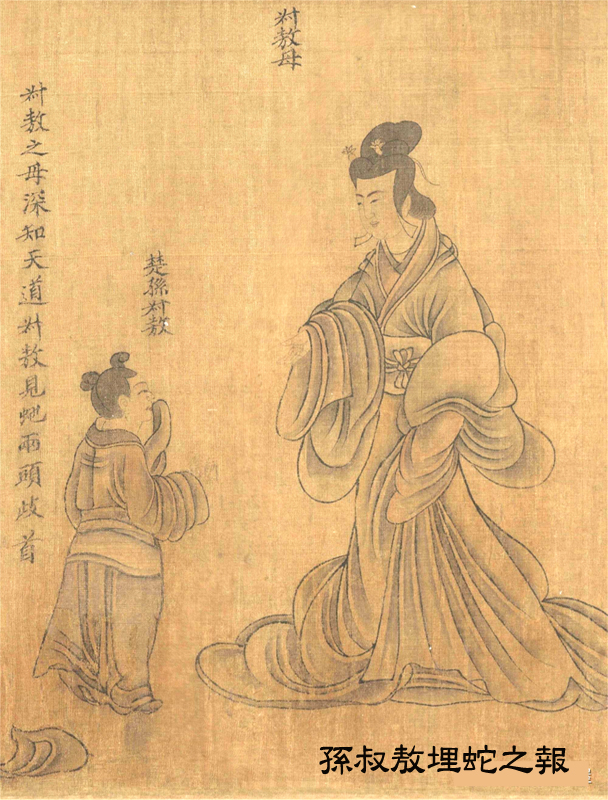 叔敖母
楚孫叔敖
叔敖之母深知天道叔敖見虵兩頭歧首
孫叔敖埋蛇之報